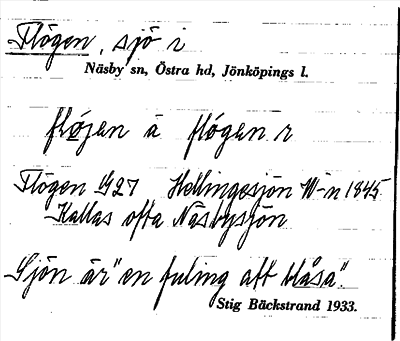 Flögen, sjö i
Näsby sn, Östra hd, Jönköpings l.
fløjen ä flögen r
Flögen G27 Hellingesjön W-n 1845
Kallas ofta Näsbysjön
Sjön är "en fuling att blåsa".
Stig Bäckstrand 1933.